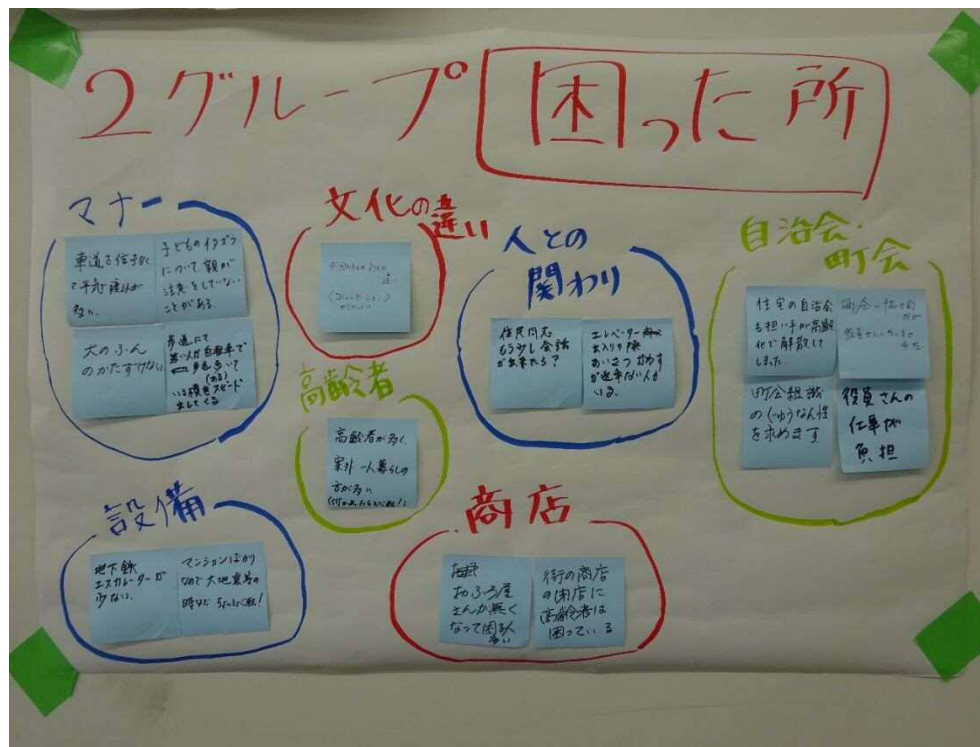 2グループ 困った所
マナー
車道で信号なく
て平気で渡る人が
多い。
子どものイタズラ
について、親が
注意をしていない
ことがある。
犬のふん
のかたずけない
歩道にて
若い人が自転車で
歩いて
いる横をスピード
出してくる
文化の違い
違い
(コミュニケーション)
高齢者
高齢者が多く、
案外一人暮らしの
方が多い
人との
関わり
住民同志
もう少し会話
が出来たら?
エレベーター
出入りの際
あいさつかわす
が出来ない人も
いる。
自治会・
町会
住宅の自治会
も担い手が高齢
化で解散して
しました。
町会組織
のじゅうなん性
を求めます
役員さんの
仕事が
負担
設備
地下鉄
エスカレーターが
少ない、
マンションばかり
なので大地震等の
時など ちょっと心配!
商店
おふろ屋
さんが無く
なって困る人
多い
街の商店
の閉店に
高齢者は
困っている